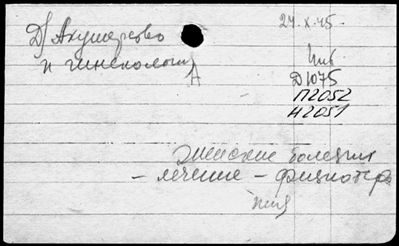 Д/ Акушерство
и гинекологии
А
24-X-45-
Д1075
П2052
И2051
женские болезни
- лечение - физиотера
пия